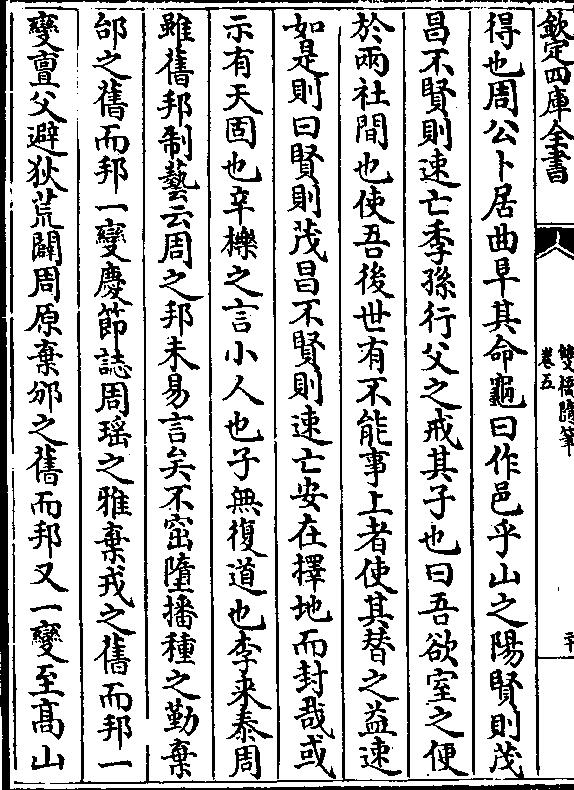 欽定四庫全書
雙橋隨筆
卷五
二十
得也周公卜居曲阜其命龜曰作邑乎山之陽賢則茂
昌不賢則速亡季孫行父之戒其子也曰吾欲室之便
於兩社間也使吾後世有不能事上者使其替之益速
如是則曰賢則茂昌不賢則速亡安在擇地而封哉或
示有天固也辛櫟之言小人也子無復道也李來泰周
雖舊邦制藝云周之邦未易言矣不窋墮播種之勤棄
邰之舊而邦一變慶節誌周瑶之雅棄戎之舊而邦一
變亶父避狄荒闢周原棄邠之舊而邦又一變至高山